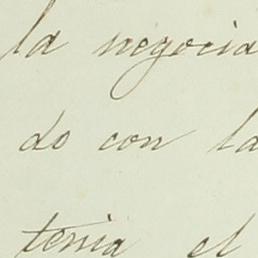 la negocia
do con la
tenia el